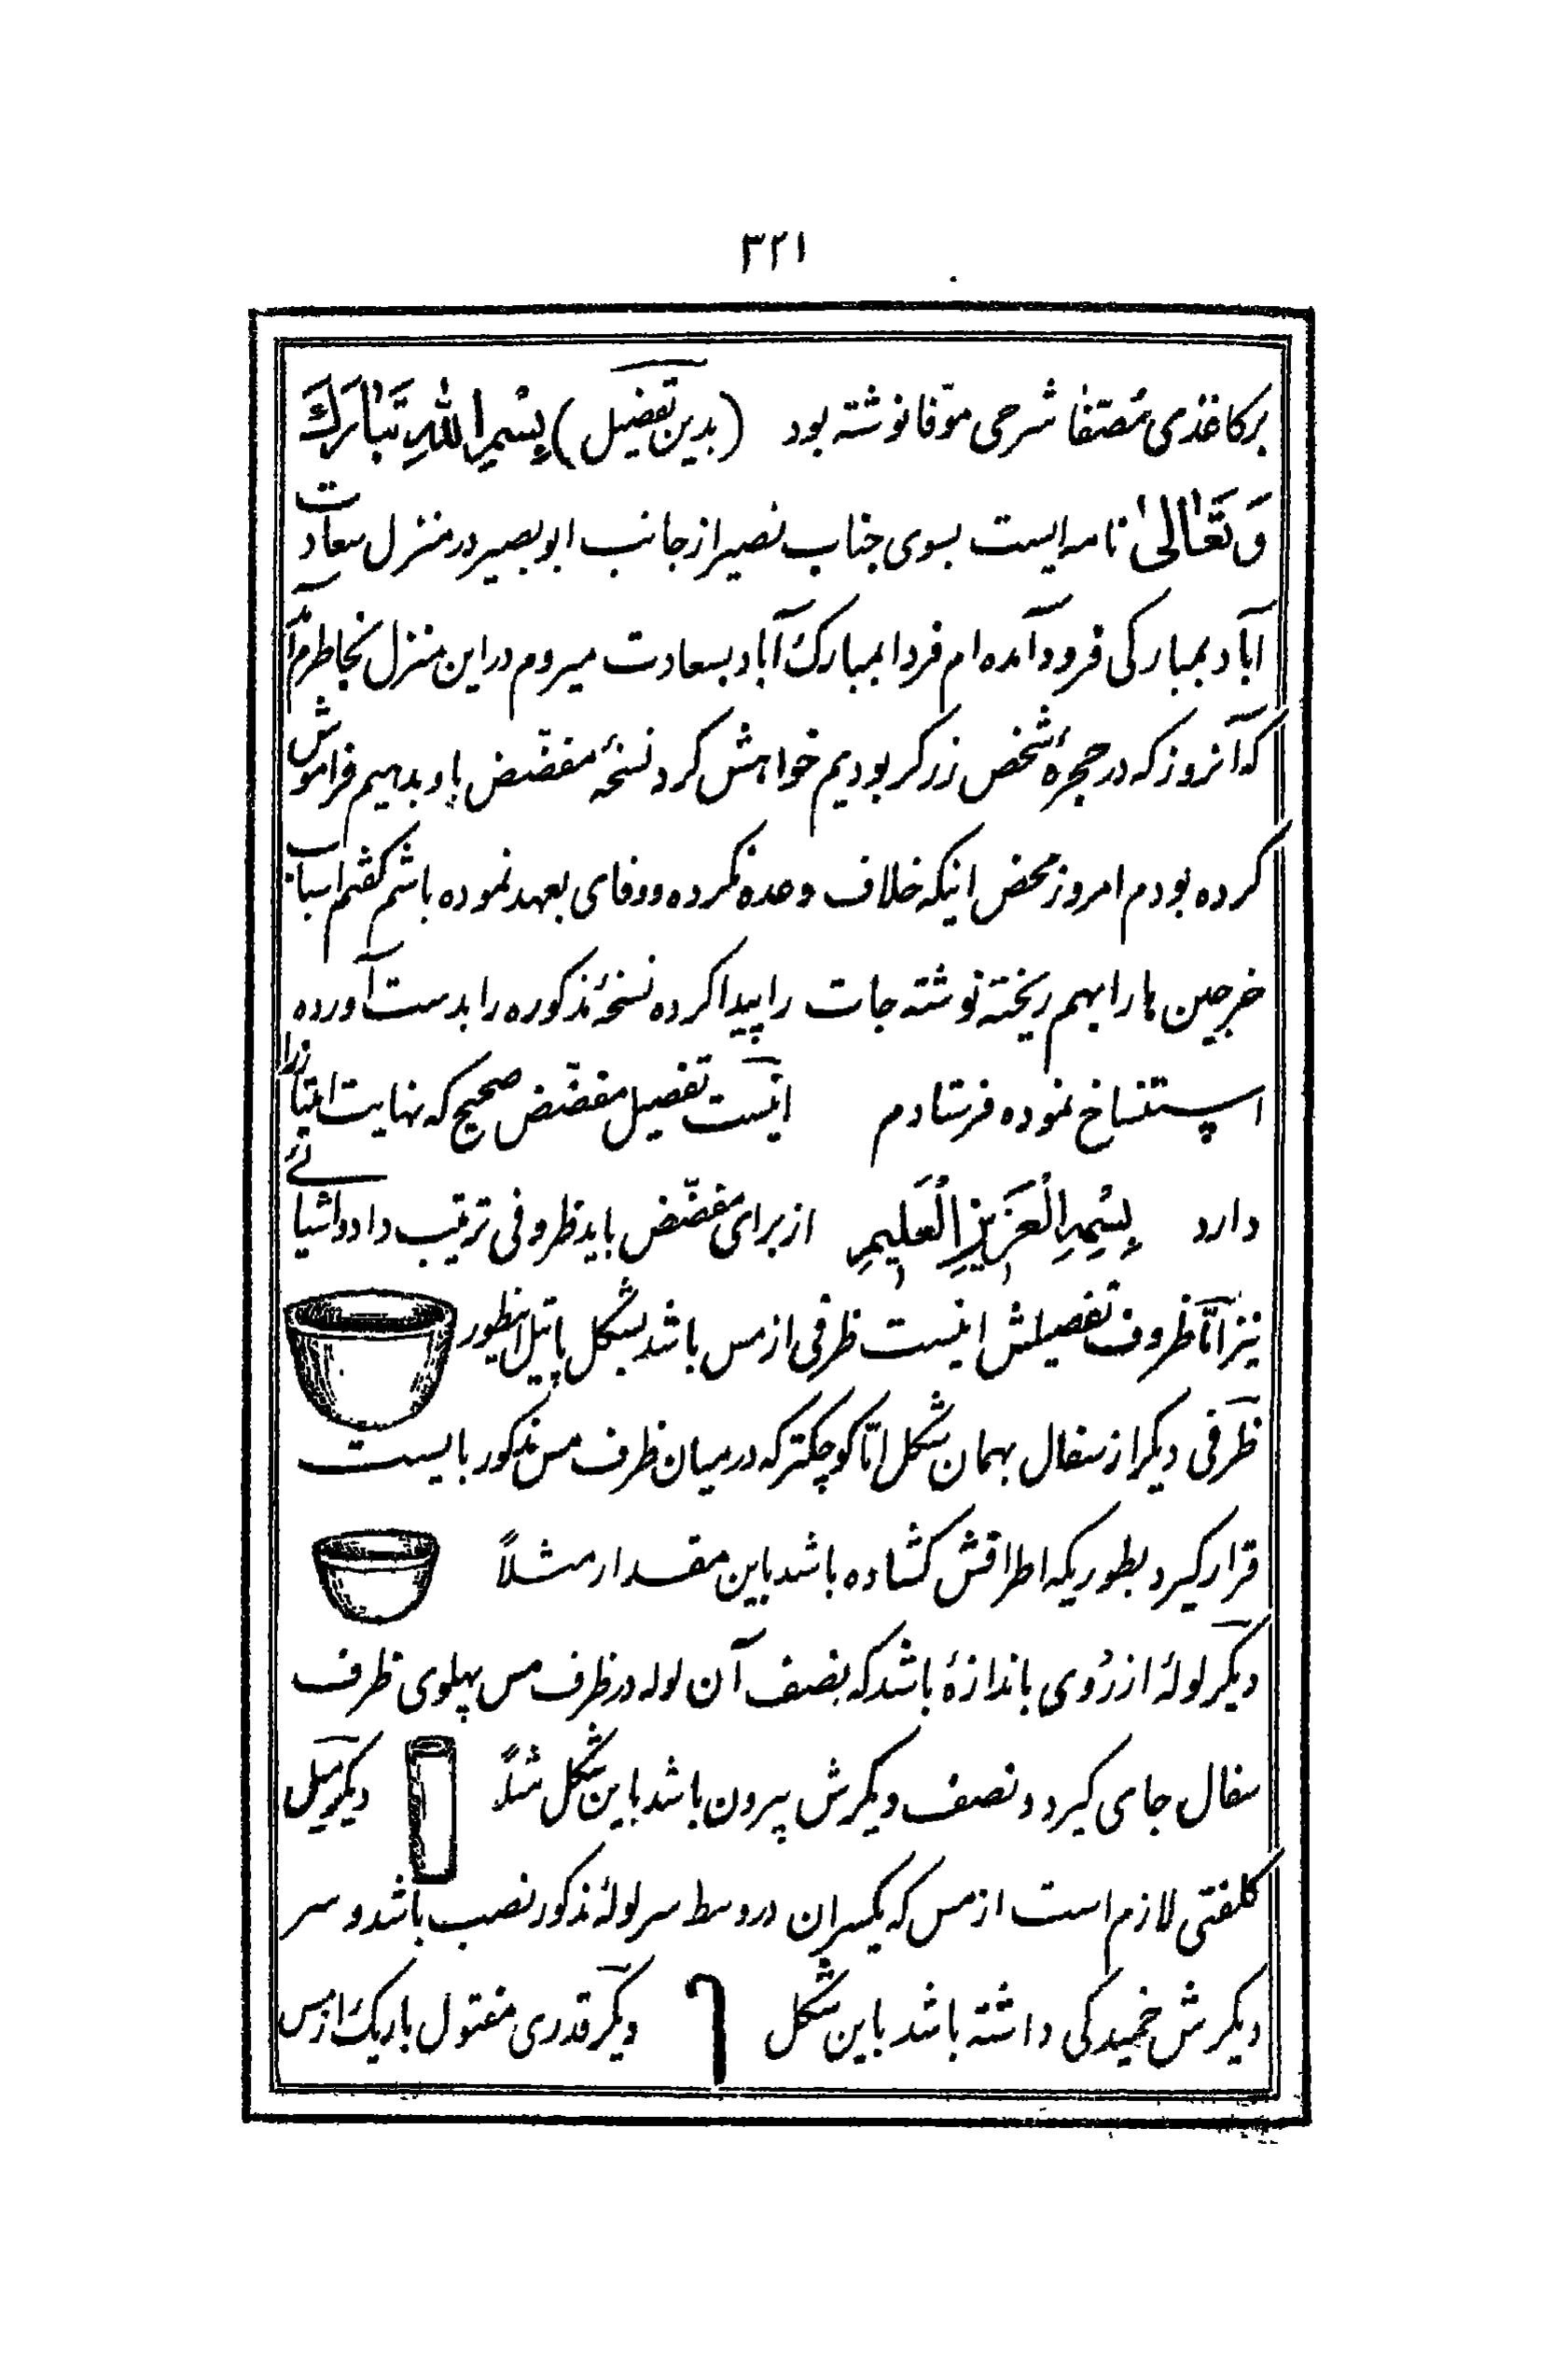 ۳۲۱
برکاغذی مصتفا شرحی موّفا نوشته بود (بدین تفصیل) بِسْمِ اللهِ تَبَارَكَ
وَتَعَالیٰ نامه ایست بسوی جناب نصیر از جانب ابوبصیر در منزل سعادت
آباد بمبارکی فرود آمده ام فردا بمبارک آباد بسعادت میروم در این منزل بخاطرم آمد
که آنروز که در حجرهٔ شخص زرکر بودیم خواهش کرد نسخهٔ مفضّض باو بدهیم فراموش
کرده بودم امروز محض اینکه خلاف وعده نکرده ووفای بعهد نموده باشم کفتم اسباب
خرجین ها را بهم ریخته نوشته جات را پیدا کرده نسخهٔ مذکوره را بدست آورده
استنساخ نموده فرستادم اینست تفصیل مفضّض صحیح که نهایت امتیاز را
دارد بِسْمِهِ الْعَزِیزِ الْعَلِیمِ از برای مفضّض باید ظروفی ترتیب داد واشیائے
نیز امّا ظروف تفصیلش اینست ظرفی از مس باشد بشکل پاتیل اینطور
ظرفی دیکر از سفال بهمان شکل امّا کوچکتر که در میان ظرف مس مذکور بایست
قرار کیرد بطوریکه اطرافش کشاده باشد باین مقدار مثلاً
دیکر لولهٔ از رُوی باندازهٔ باشد که بنصف آن لوله در ظرف مس پهلوی ظرف
سفال جای کیرد و نصف دیکرش بیرون باشد باین شکل مثلاً دیکر میل
کلفتی لازم است از مس که یکسر ان در وسط سر لولهٔ مذکور نصب باشد و سر
دیکرش خمیدکی داشته باشد باین شکل دیکر قدری مفتول باریک از مس